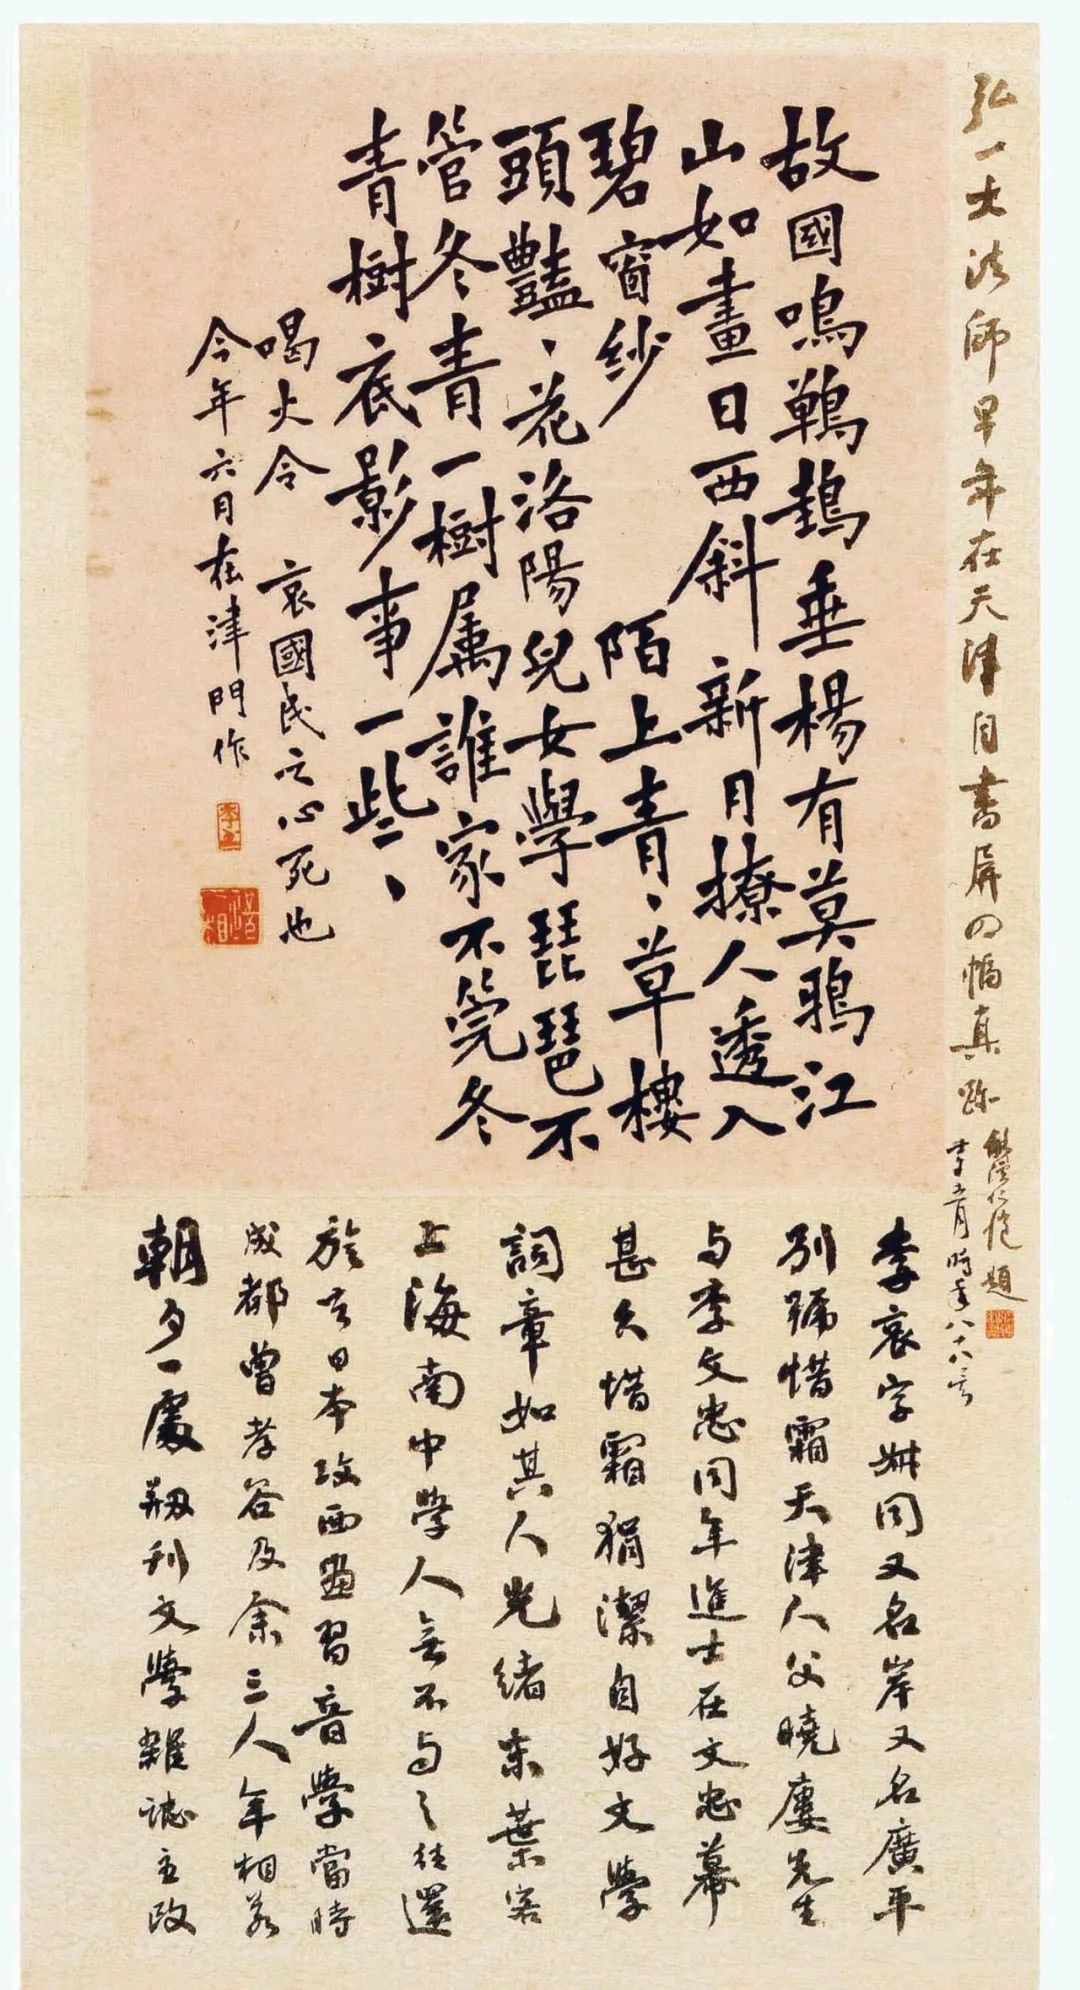 弘一大法師早年在天津自書屏四幅真跡
題
時年八十八
故國鳴鵯鶋垂楊有莫鴉江
山如畫日西斜新月撩人透入
碧窗紗陌上青、草樓
頭豔、花洛陽兒女學琵琶不
管冬青一樹屬誰家不筦冬
青樹底影事一些、
喝火令 哀國民之心死也
今年六月在津門作
李哀字叔同又名岸又名廣平
別號惜霜天津人父曉廔先生
与李文忠同年進士在文忠幕
甚久惜霜狷潔自好文學
詞章如其人光緒末葉客
上海南中學人無不与之往還
旋去日本攻西畫習音學當時
成都曾孝谷及余三人年相若
朝夕一處刱刊文學雜誌主政